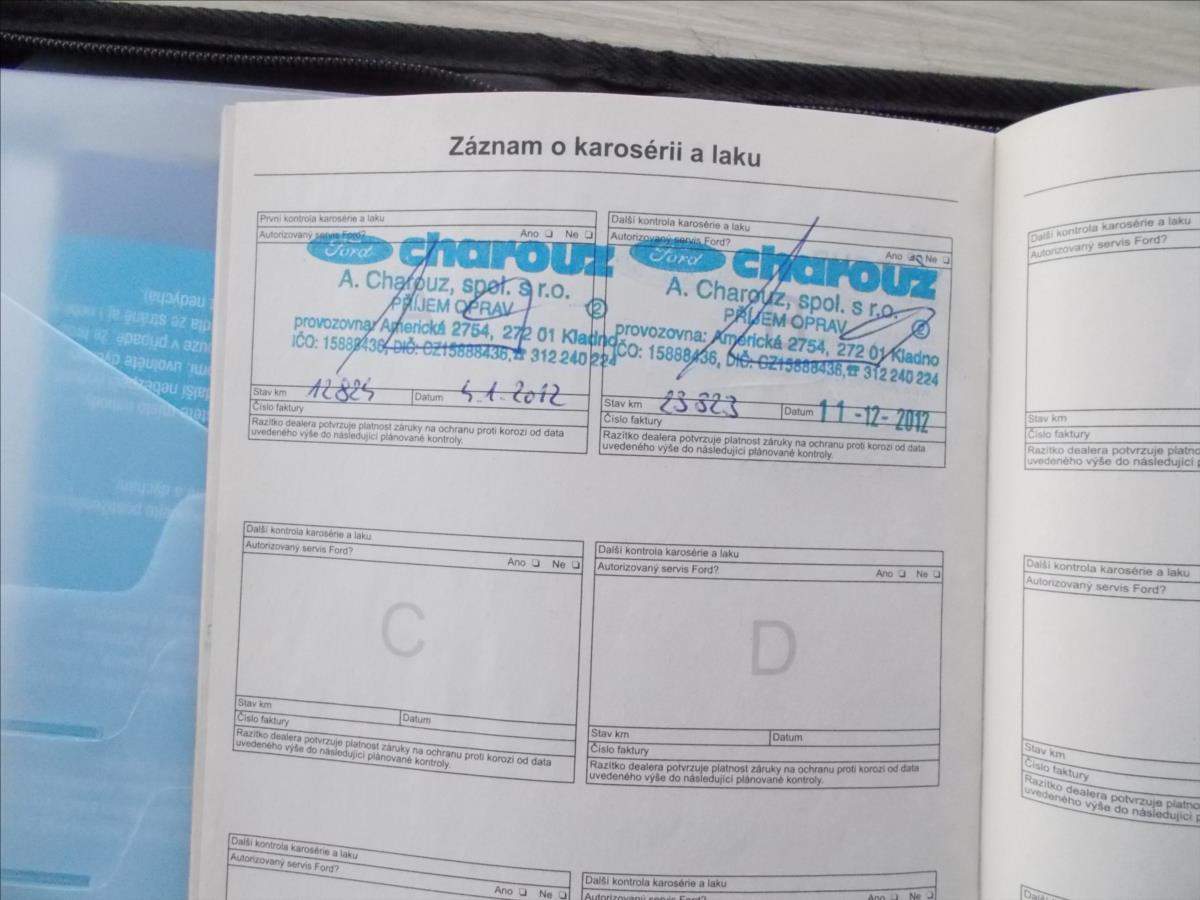 Záznam o karosérii a laku
První kontrola karosérie a laku
Autorizovaný servis Ford?
Ano ❏ Ne ❏
Ford charouz
A. Charouz, spol. s r.o.
PŘÍJEM OPRAV 2
provozovna: Americká 2754, 272 01 Kladno
IČO: 15888436, DIČ: CZ15888436, ☎ 312 240 224
Stav km 12824 Datum 4.1.2012
Číslo faktury
Razítko dealera potvrzuje platnost záruky na ochranu proti korozi od data
uvedeného výše do následující plánované kontroly.
Další kontrola karosérie a laku
Autorizovaný servis Ford?
Ano ❏ Ne ❏
Ford charouz
A. Charouz, spol. s r.o.
PŘÍJEM OPRAV 2
provozovna: Americká 2754, 272 01 Kladno
IČO: 15888436, DIČ: CZ15888436, ☎ 312 240 224
Stav km 23823 Datum 11-12-2012
Číslo faktury
Razítko dealera potvrzuje platnost záruky na ochranu proti korozi od data
uvedeného výše do následující plánované kontroly.
Další kontrola karosérie a laku
Autorizovaný servis Ford?
Ano ❏ Ne ❏
C
Stav km
Číslo faktury Datum
Razítko dealera potvrzuje platnost záruky na ochranu proti korozi od data
uvedeného výše do následující plánované kontroly.
Další kontrola karosérie a laku
Autorizovaný servis Ford?
Ano ❏ Ne ❏
D
Stav km Datum
Číslo faktury
Razítko dealera potvrzuje platnost záruky na ochranu proti korozi od data
uvedeného výše do následující plánované kontroly.
Další kontrola karosérie a laku
Autorizovaný servis Ford?
Ano ❏ Ne ❏
Další kontrola karosérie a laku
Autorizovaný servis Ford?
Ano ❏ Ne ❏
Další kontrola karosérie a laku
Autorizovaný servis Ford?
Stav km
Číslo faktury
Razítko dealera potvrzuje
uvedeného výše do následující
Další kontrola karosérie a laku
Autorizovaný servis Ford?
Stav km
Číslo faktury
Razítko dealera potvrzuje
uvedeného výše do následující